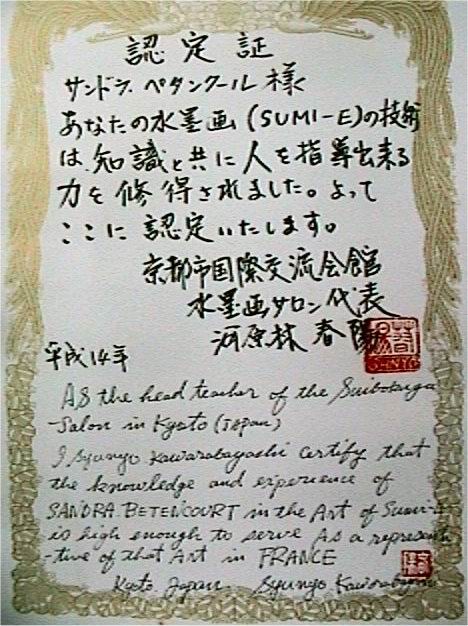 認定証
サンドラ ペタンクール 様
あなたの水墨画(SUMI-E)の技術
は、知識と共に人を指導出来る
力を修得されました。よって
ここに認定いたします。
京都市国際交流会館
水墨画サロン代表
河原林 春陽
平成14年
As the head teacher of the Suibokuga
Salon in Kyoto (JAPAN)
I Syunyo Kawarabayashi certify that
the knowledge and experience of
SANDRA BETENCOURT in the Art of Sumi-e
is high enough to serve As a represent
-tive of that Art in FRANCE
Kyoto, Japan. Syunyo Kawarabayashi